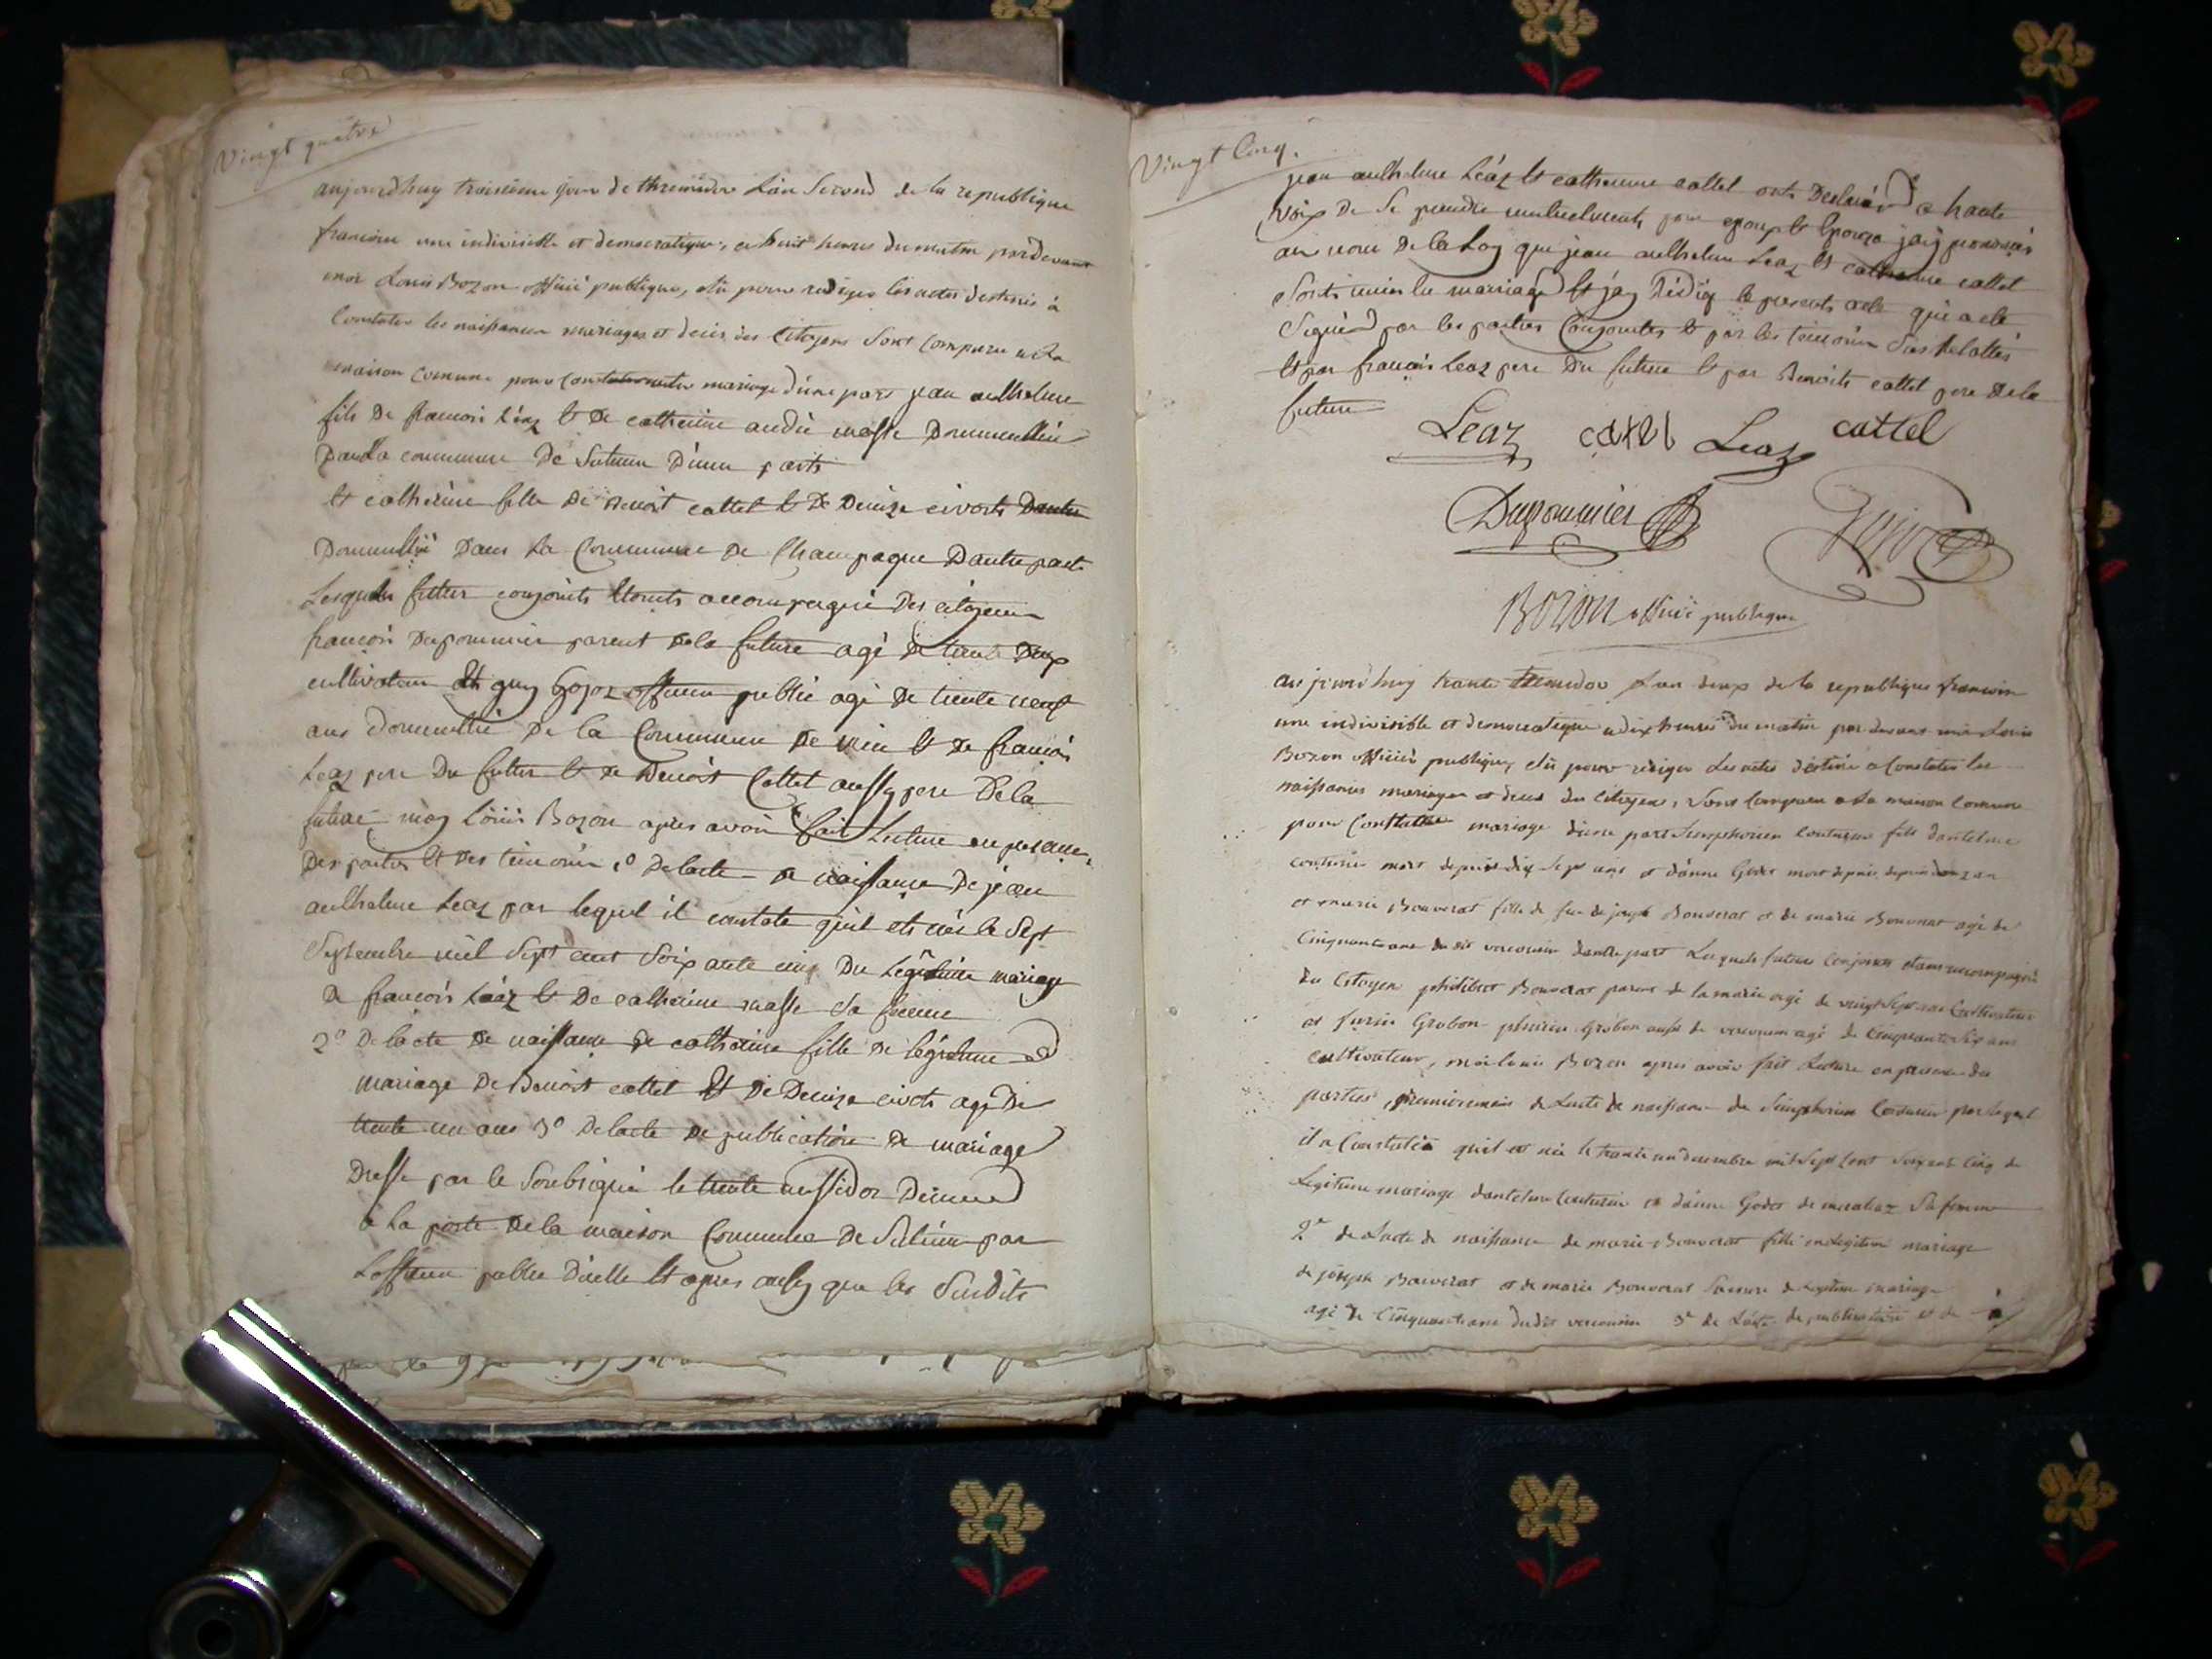 Vingt quatre
aujourdhuy troisieme jour de thremidor L'an Second de la republique
francoise une indivisible et democratique, a huit heures du matin pardevant
moi Louis Bozon officié publique, elü pour rediger les actes destinés à
Constater les naissances mariages et décés des Citoyens Sont comparu a la
maison Comune pour mariage d'une part jean anthelme
fils de francois Léaz et de catherine masse Domicillié
Dans La commune De Sutrieu D'une parts
Et catherine fille De Benoit cattet et De Denize civoct
Domicillié Dans La Commune De Champagne Dautre parts
Lesquels futur conjoints Etants accompagné Des citoyens
francois Dupommier parent De la future agé De trente Deux
cultivateur Et guy officier public agé De trente neuf
ans Domicillié De la Commune De et De francois
Leaz pere Du futur et De Benoist Cattet aussy pere De la
future moy Loüis Bozon apres avoir fait Lecture en presence
Des parties Et Des temoins 1º De lacte De naissance De jean
anthelme Leaz par lequel il constate quil est née le Sept
Septembre mil Sept cent Soixante cinq Du Légitime mariage
De francois Léaz et De catherine masse Sa femme
2º De lacte De naissance De catherine fille De légitime
mariage De Benoist cattet Et De Denize civoct agé De
trente un ans 3º De lacte De publication De mariage
Dressé par le Soubsigné le trente messidor Dernier
à La porte De la maison Commune De Sutrieu par
Loffficier public Dicelle Et apres que les Susdits
Vingt Cinq.
jean anthelme Léaz Et catherine cattet onts Declaré a haute
voix De Se prendre mutuelments pour epoux et Epouze jay prononcé
au nom De la Loy que jean anthelme Leaz et catherine cattet
Sonts unis en mariage Et jay Rédigé le presents acte qui a eté
Signé par les parties Conjointes et par les temoins Sus Relattés
Et par francois Leaz pere Du future Et par Benoits cattet pere De la
future
Leaz cattet Leaz cattet
Dupommier
Bozon officié publique
aujourdhuy trante L'an deux de la republique francoise
une indivisible et democratique a dix heures du matin par devant moi Louis
Bozon officié publique, elü pour rediger Les actes destiné a Constater les
naissances mariages et décés des Citoyens, Sont Comparu a La maison Comune
pour Constatter mariage d'une part Simphorien Couturier fils dantelme
couturier mort depuis dix Sept ans et d'anne Godet mort depuis
et marie Bouverat fille de feu de joseph Bouverat et de marie Bouverat agé de
Cinquante ans du dit dautre part Lesquels futurs Conjoints etant accompagné
du Citoyen philibert Bouverat parent de la marié agé de vingt Sept ans Cultivateur
et Grobon Grobon aussi de agé de Cinquante Six ans
cultivateur, moi Louis Bozon apres avoir fait Lecture en presence des
parties, premierement de Lacte de naissance de Simphorien Couturier par lequel
il a Constaté quil est né le trante un decembre mil Sept Cent Soixante Cinq de
Legitime mariage dantelme Couturier et d'anne Godet de Sa femme
2º de Lacte de naissance de marie Bouverat fille en Legitime mariage
de joseph Bouverat et de marie Bouverat de Legitime mariage
agé de Cinquante ans dudit 3º de Lacte de publication et de